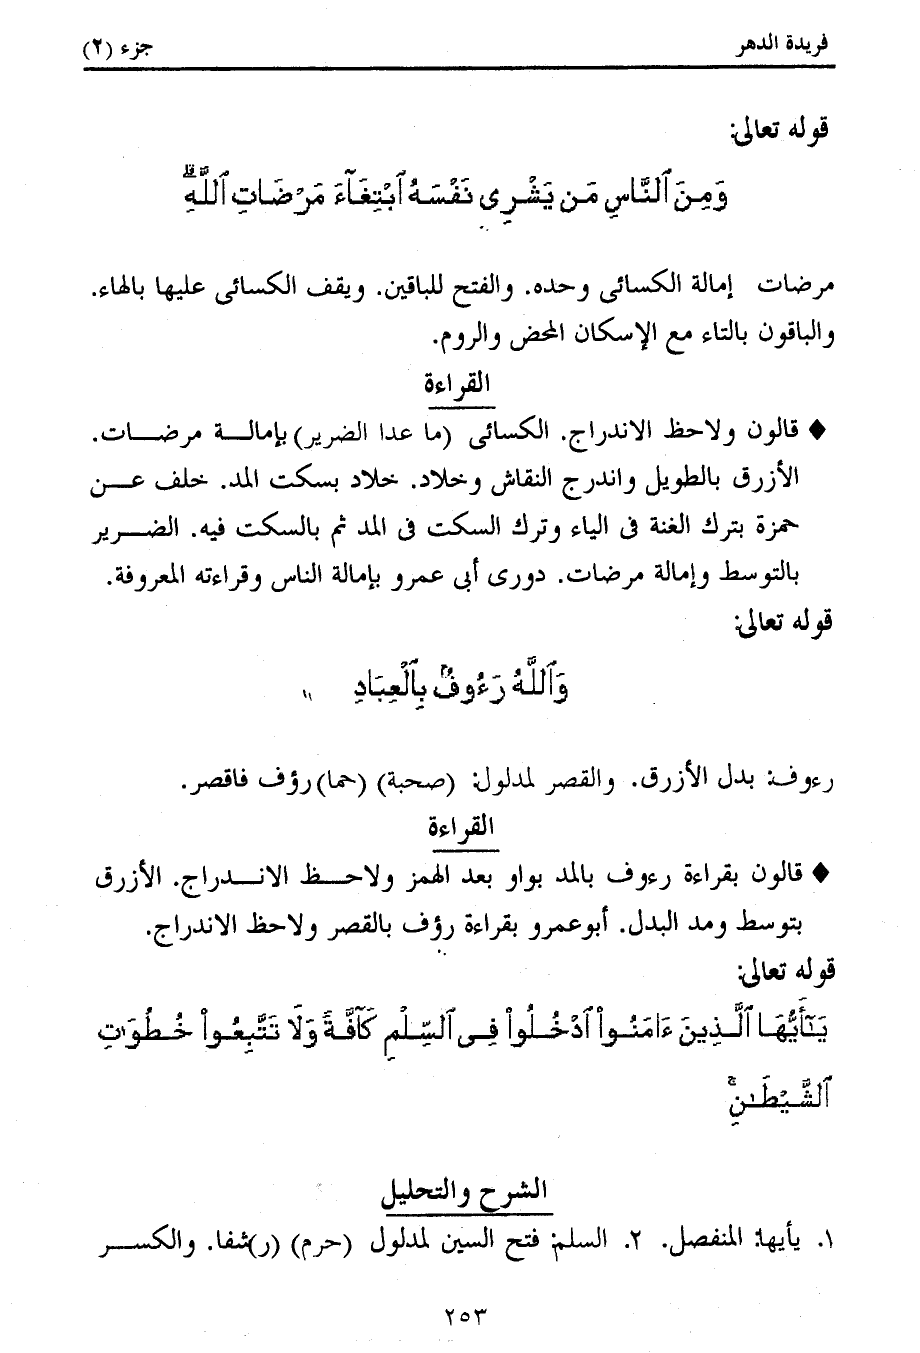 فريدة الدهر
جزء (٢)
قوله تعالى:
وَمِنَ ٱلنَّاسِ مَن يَشْرِى نَفْسَهُ ٱبْتِغَآءَ مَرْضَاتِ ٱللَّهِۗ
مرضات إمالة الكسائى وحده. والفتح للباقين. ويقف الكسائى عليها بالهاء.
والباقون بالتاء مع الإسكان المحض والروم.
القراءة
♦ قالون ولاحظ الاندراج. الكسائى (ما عدا الضرير) بإمالـة مرضـات.
الأزرق بالطويل واندرج النقاش وخلاد. خلاد بسكت المد. خلف عـن
حمزة بترك الغنة فى الياء وترك السكت فى المد ثم بالسكت فيه. الضـرير
بالتوسط وإمالة مرضات. دورى أبى عمرو بإمالة الناس وقراءته المعروفة.
قوله تعالى:
وَٱللَّهُ رَءُوفٌۢ بِٱلْعِبَادِ
رءوف: بدل الأزرق. والقصر لمدلول: (صحبة) (حما) رؤف فاقصر.
القراءة
♦ قالون بقراءة رءوف بالمد بواو بعد الهمز ولاحـظ الانـدراج. الأزرق
بتوسط ومد البدل. أبوعمرو بقراءة رؤف بالقصر ولاحظ الاندراج.
قوله تعالى:
يَـٰٓأَيُّهَا ٱلَّذِينَ ءَامَنُوا۟ ٱدْخُلُوا۟ فِى ٱلسِّلْمِ كَآفَّةً وَلَا تَتَّبِعُوا۟ خُطُوَٰتِ
ٱلشَّيْطَـٰنِۚ
الشرح والتحليل
١. يأيها: المنفصل. ٢. السلم: فتح السين لمدلول (حرم) (ر)شفا. والكسـر
٢٥٣